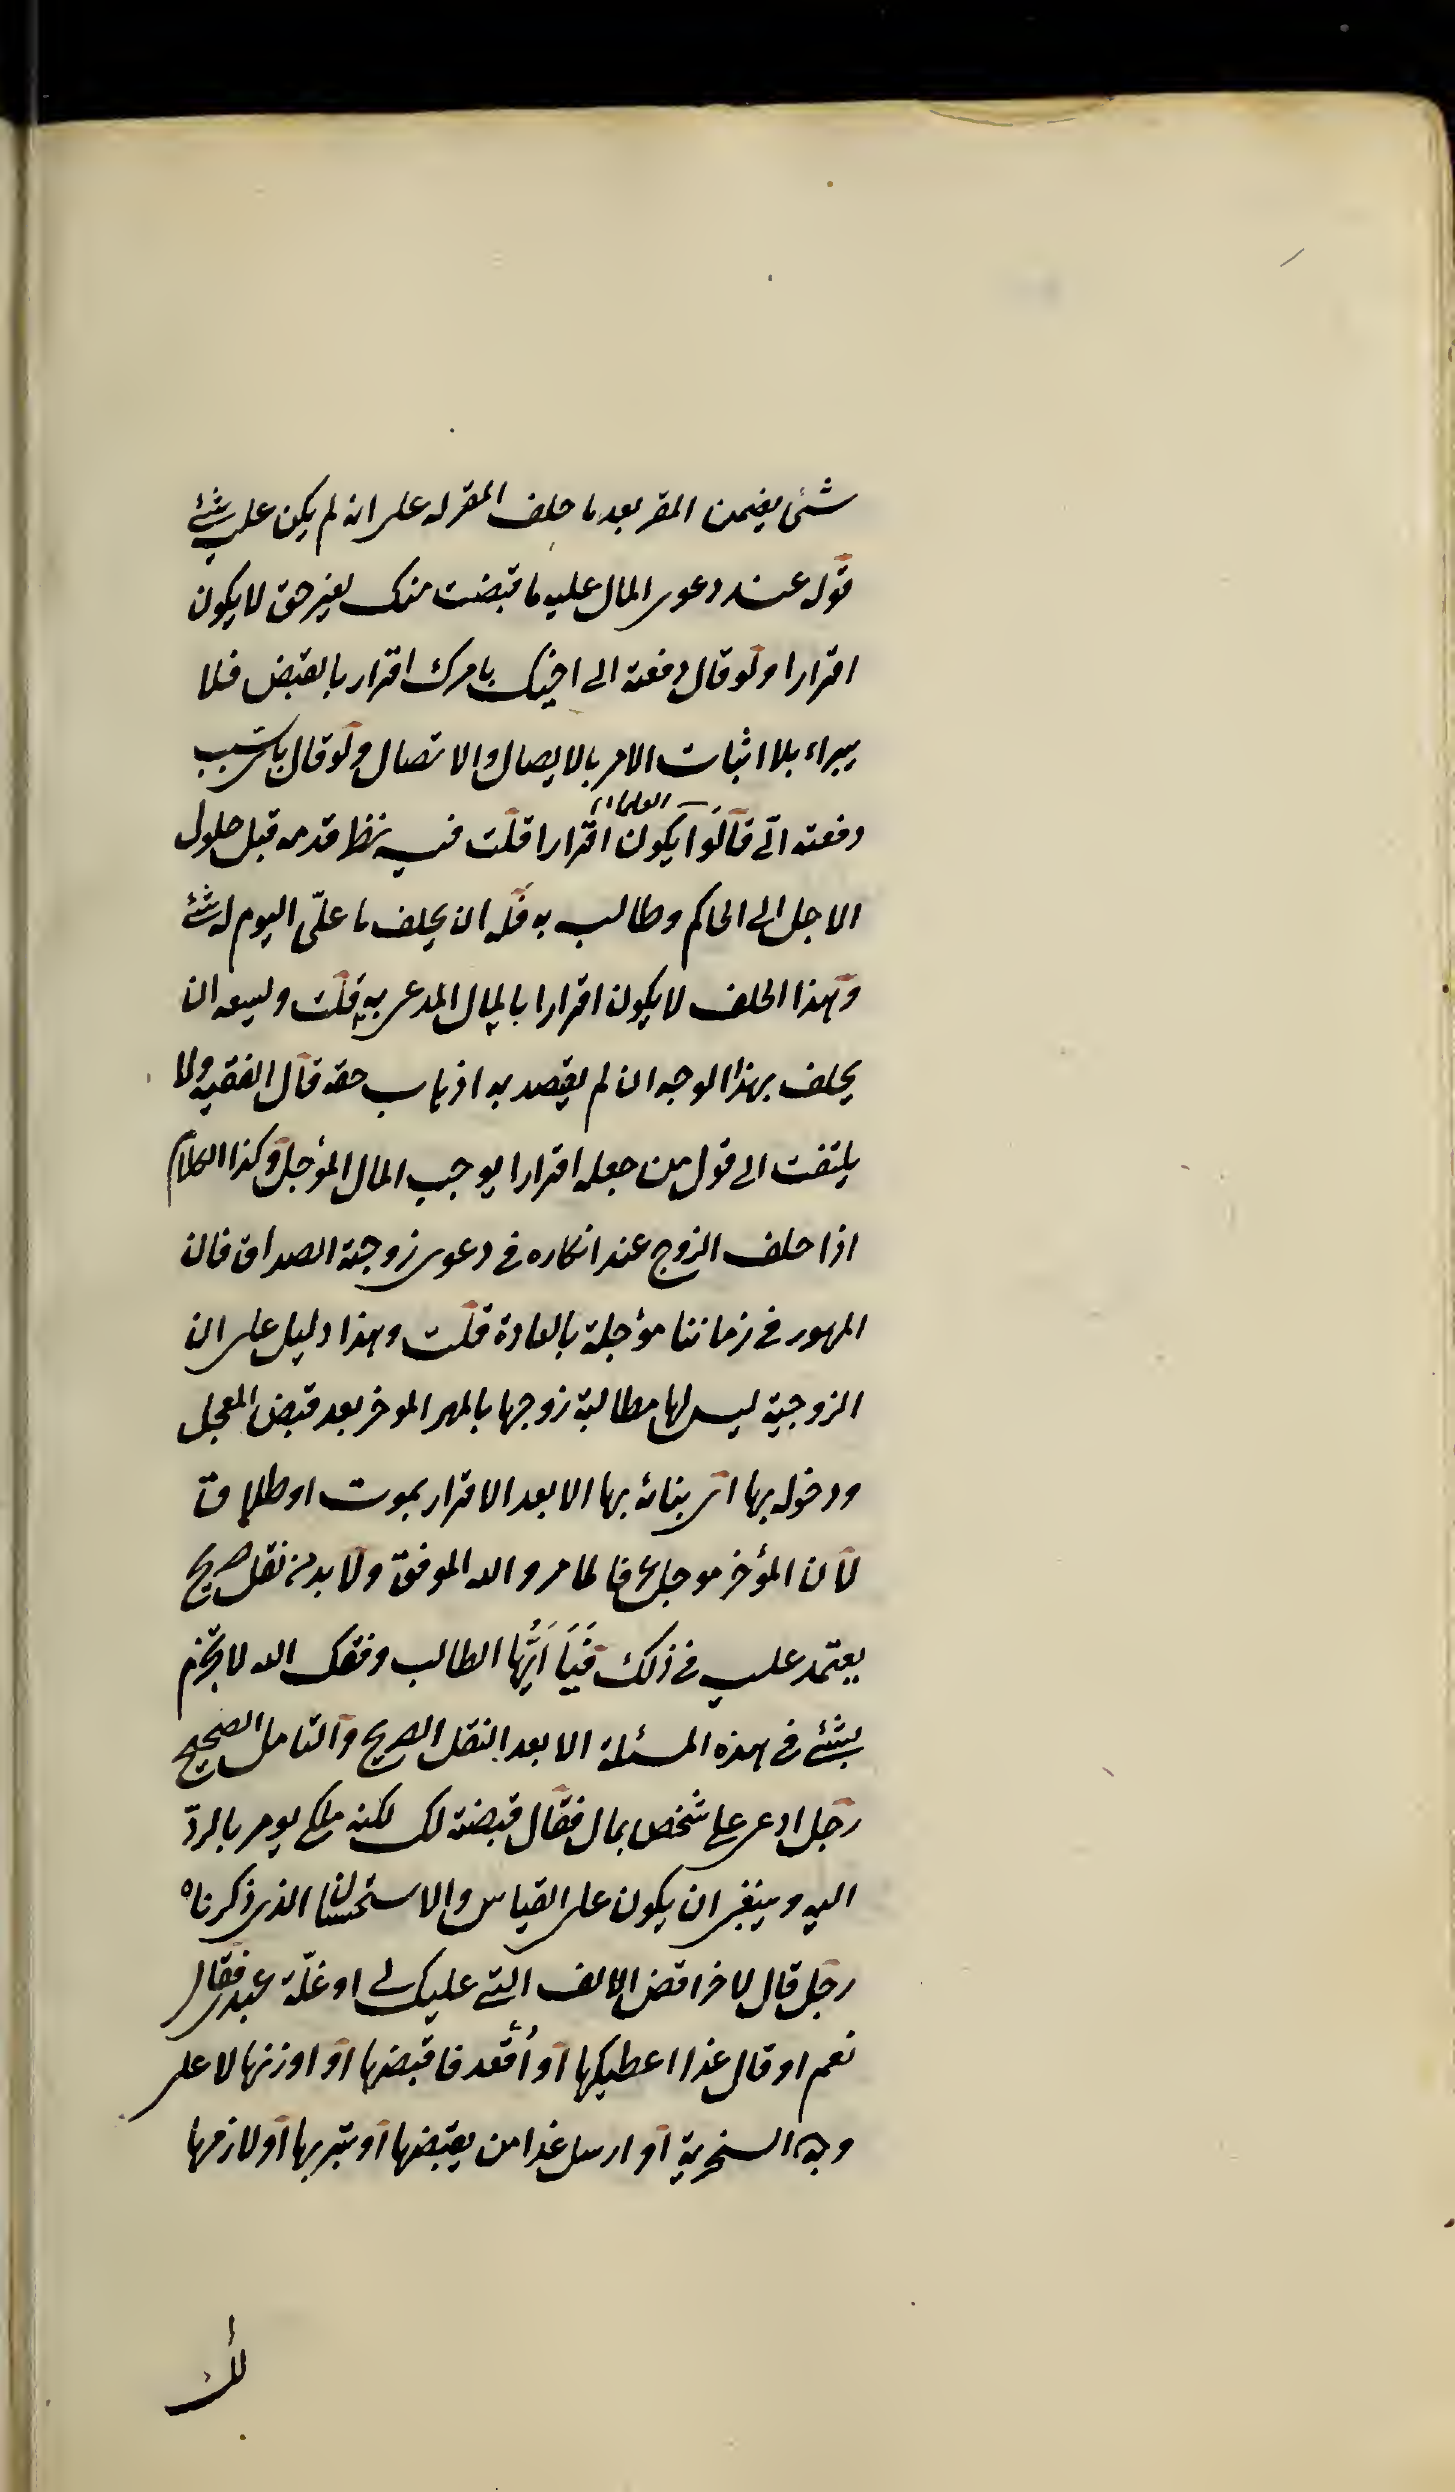 شئ يضمن المقر بعد ما حلف المقر له على انه لم يكن عليه شئ
قوله عند دعوى المال عليه ما قبضت منك بغير حق لا يكون
اقرارا ولو قال دفعته الى اخيك بامرك اقرار بالقبض فلا
يبراء بلا اثبات الامر بالايصال والاتصال ولو قال باى سبب
دفعته الىّ قالوا يكون اقرارا قلت فيه نظر قدمه قبل حلول
العلماء
الاجل الى الحاكم وطالب به فله ان يحلف ما علىّ اليوم له شئ
وهذا الحلف لا يكون اقرارا بالمال المدعى به قلت وليسعه ان
يحلف بهذا الوجه ان لم يقصد به اذهاب حقه قال الفقيه ولا
يلتفت الى قول من جعله اقرارا يوجب المال المؤجل وكذا الكلام
اذا حلف الزوج عند انكاره فى دعوى زوجته الصداق فان
المهور فى زماننا مؤجلة بالعادة قلت وهذا دليل على ان
الزوجية ليس لها مطالبة زوجها بالمهر الموخر بعد قبض المعجل
ودخوله بها اى بنائه بها الا بعد الاقرار بموت او طلاق
لان المؤخر موجل والله الموفق ولا بد من نقل صريح
يعتمد عليه فى ذلك فَيَا اَيُّها الطالب وفقك الله لا تجزم
بشئ فى هذه المسئلة الا بعد النقل الصريح والتامل الصحيح
رجل ادعى على شخص بمال فقال قبضته لك لكنه ملكى يومر بالردّ
اليه وينبغى ان يكون على القياس والاستحسان الذى ذكرناه
رجل قال لاخر اقض الالف التى عليك لى او غلّة عبدى فقال
نعم او قال غدا اعطيكها او اُقعد فاقبضها او اوزنها لا على
وجه السخرية او ارسل غدا من يقبضها او تتبر بها او لازمها
لك